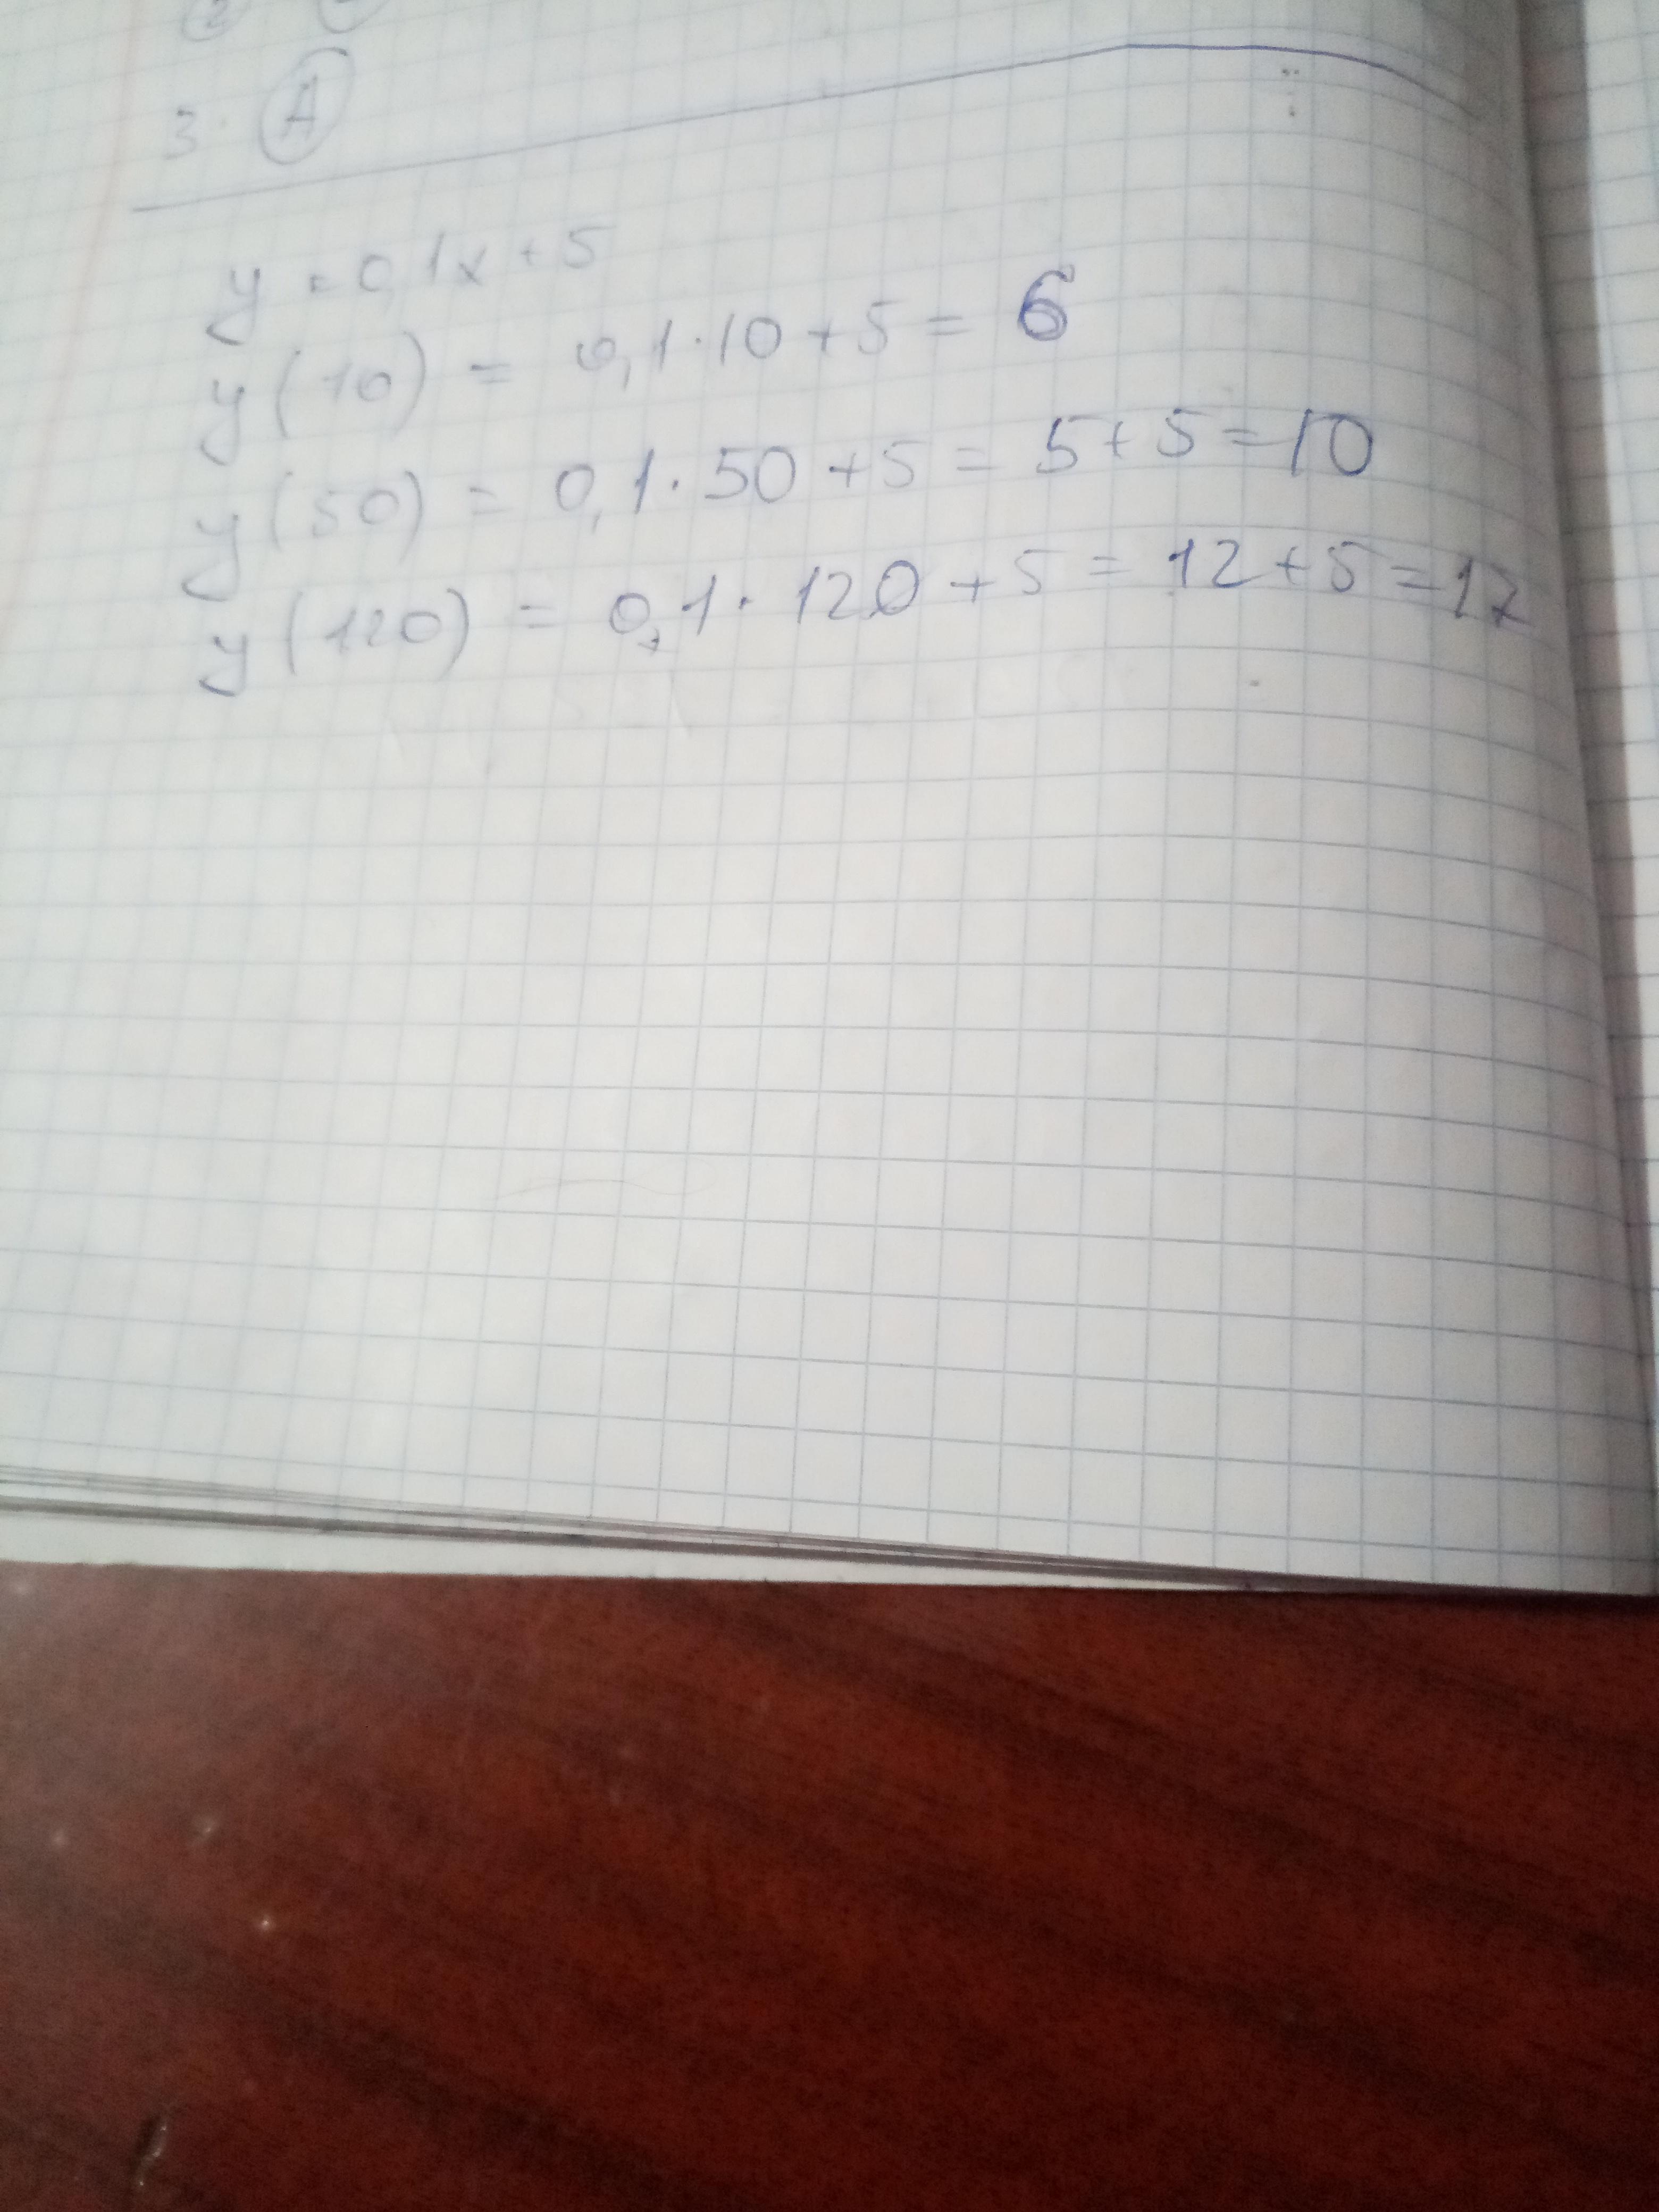 3. A
y = 0,1x + 5
y(10) = 0,1·10+5 = 6
y(50) = 0,1·50+5 = 5+5=10
y(120) = 0,1·120+5 = 12+5=17